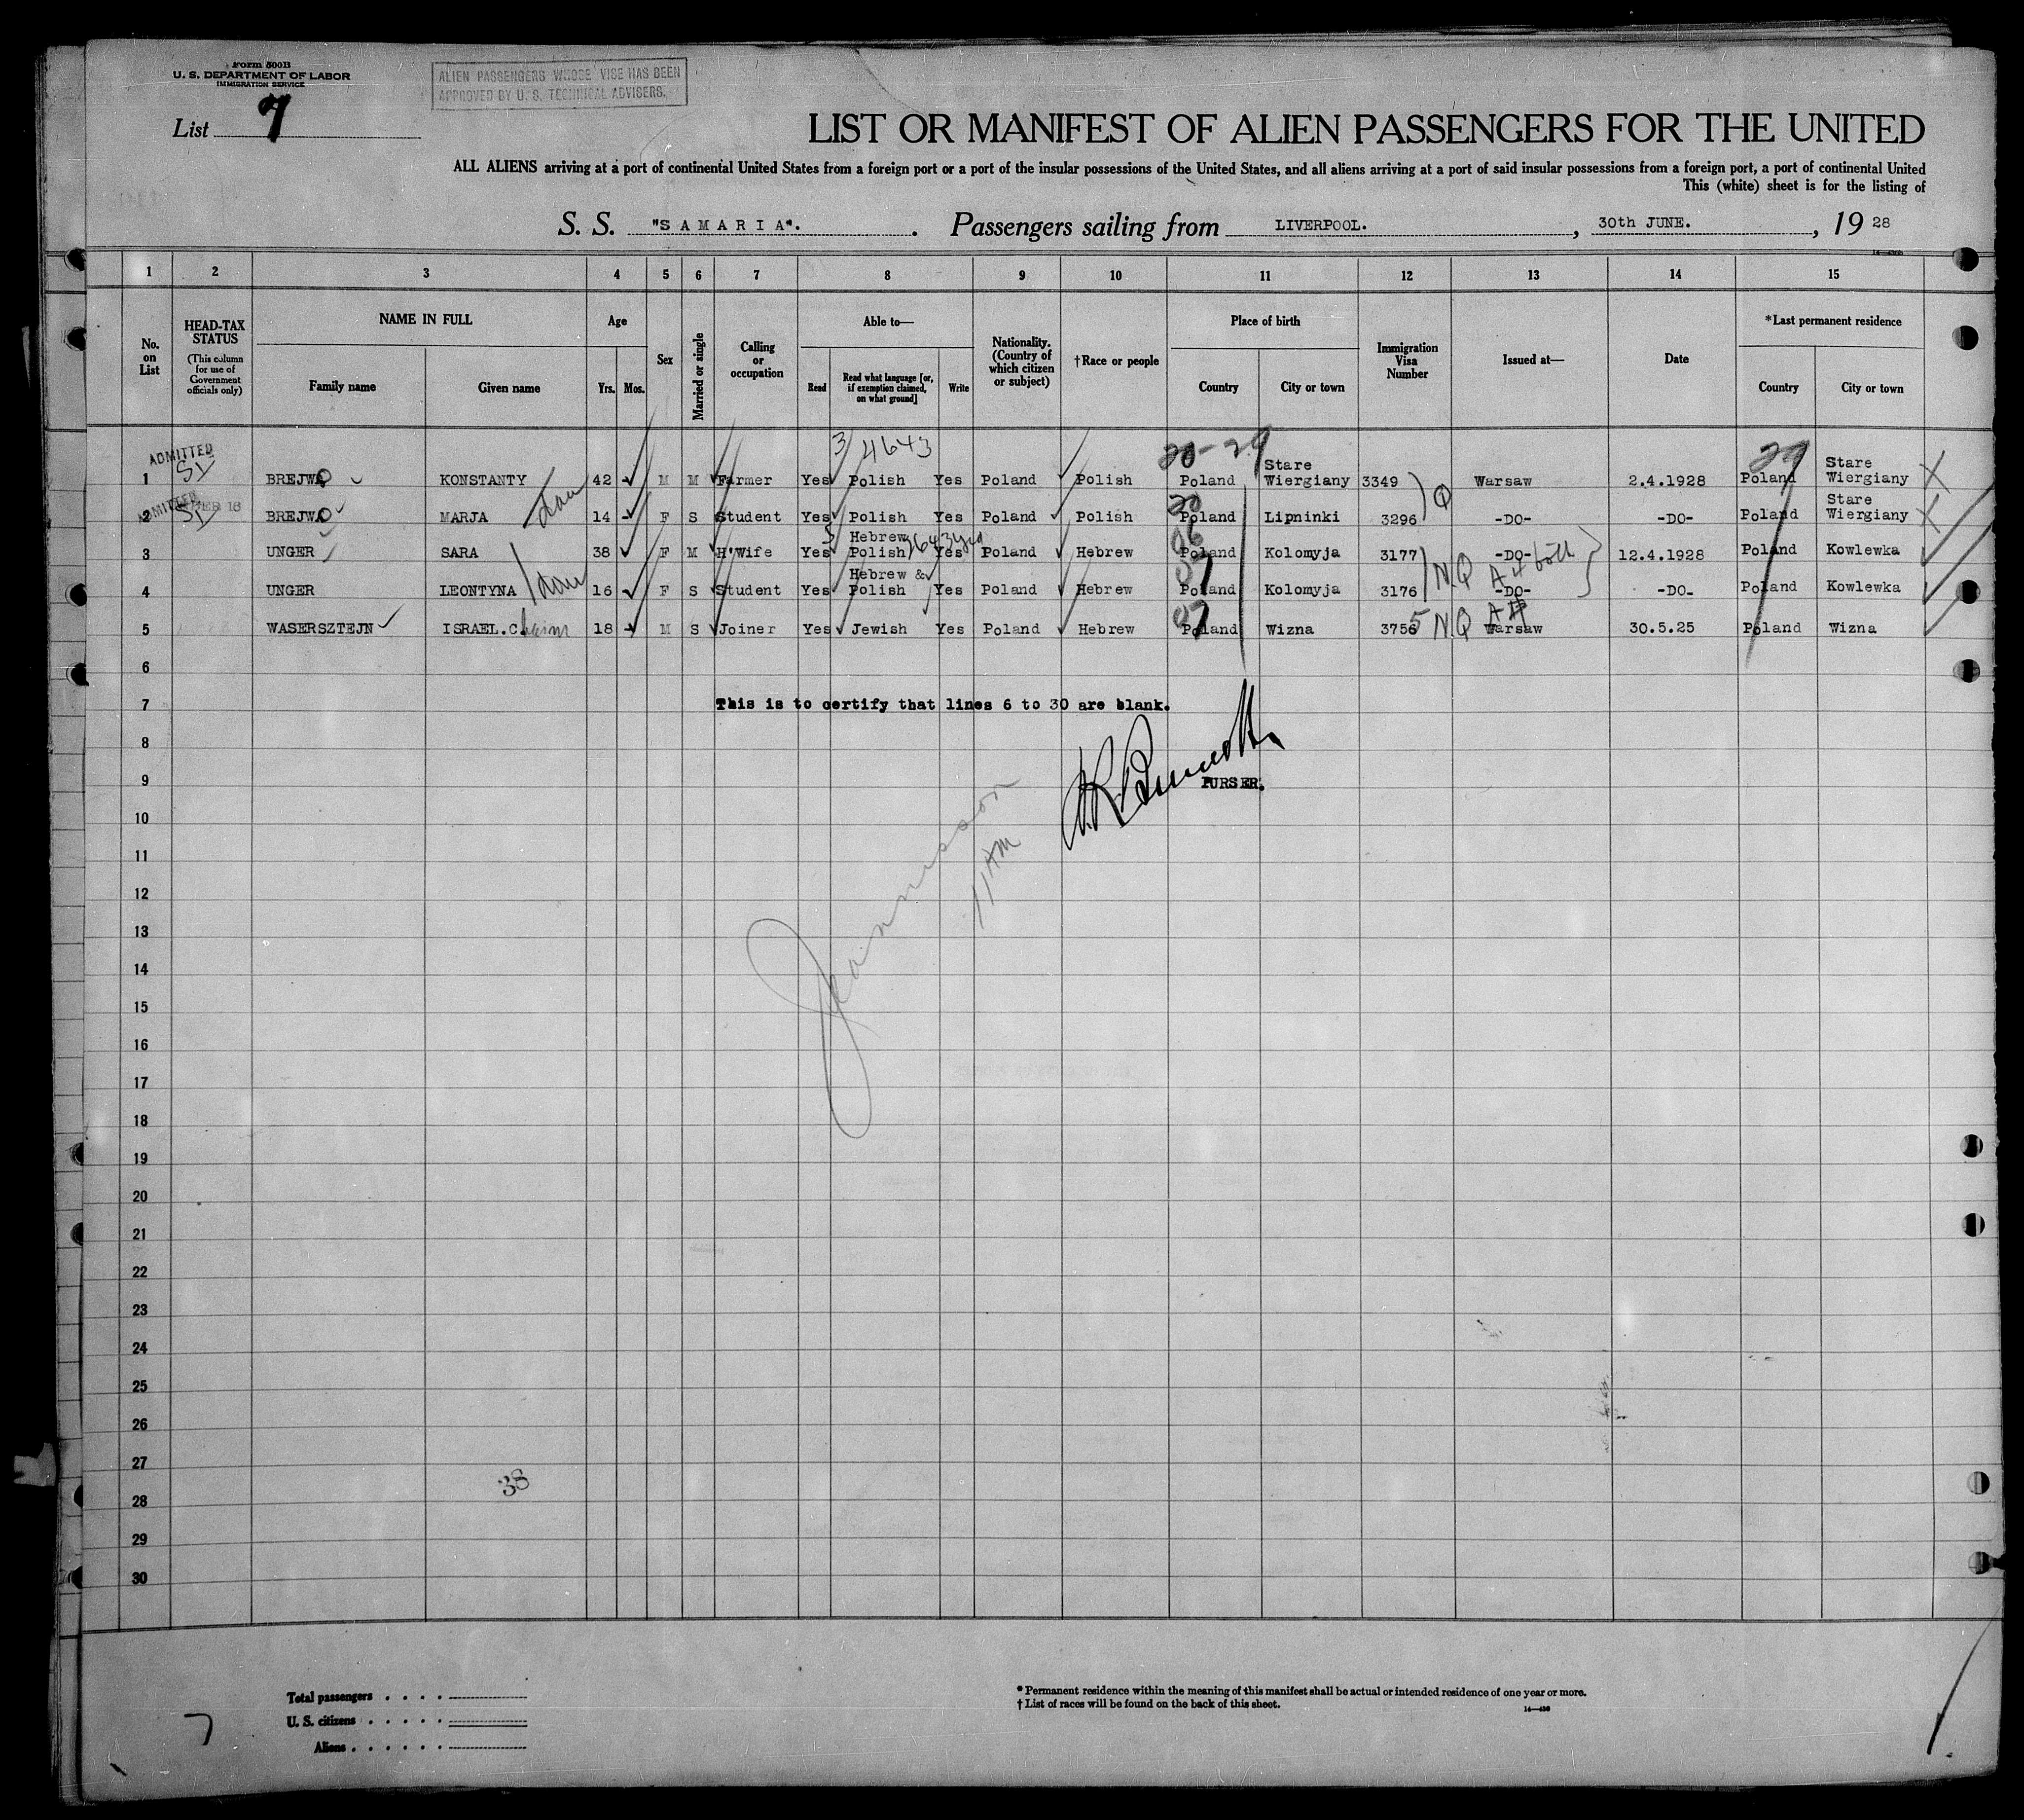 Form 500B
U. S. DEPARTMENT OF LABOR
IMMIGRATION SERVICE
ALIEN PASSENGERS WHOSE VISE HAS BEEN
APPROVED BY U. S. TECHNICAL ADVISERS.
List 7
LIST OR MANIFEST OF ALIEN PASSENGERS FOR THE UNITED
ALL ALIENS arriving at a port of continental United States from a foreign port or a port of the insular possessions of the United States, and all aliens arriving at a port of said insular possessions from a foreign port, a port of continental United
This (white) sheet is for the listing of
S. S. "SAMARIA". Passengers sailing from LIVERPOOL., 30th JUNE., 19 28
1 2 3 4 5 6 7 8 9 10 11 12 13 14 15
No. on List
HEAD-TAX STATUS (This column for use of Government officials only)
NAME IN FULL
Family name Given name
Age
Yrs. Mos.
Sex
Married or single
Calling or occupation
Able to—
Read
Read what language [or, if exemption claimed, on what ground]
Write
Nationality. (Country of which citizen or subject)
†Race or people
Place of birth
Country City or town
Immigration Visa Number
Issued at—
Date
*Last permanent residence
Country City or town
3/4643 20-29 29
ADMITTED SI
1 BREJWO KONSTANTY 42 M M Farmer Yes Polish Yes Poland Polish Poland Stare Wiergiany 3349 Q Warsaw 2.4.1928 Poland Stare Wiergiany X
ADMITTED SI
2 BREJWO MARJA 14 F S Student Yes Polish Yes Poland Polish 20 Poland Lipninki 3296 -DO- -DO- Poland Stare Wiergiany X
3 UNGER SARA 38 F M H'Wife Yes Hebrew Polish Yes Poland Hebrew Poland Kolomyja 3177 -DO- 12.4.1928 Poland Kowlewka
4 UNGER LEONTYNA 16 F S Student Yes Hebrew & Polish Yes Poland Hebrew 07 Poland Kolomyja 3176 NQ -DO- -DO- Poland Kowlewka
5 WASERSZTEJN ISRAEL.Chaim 18 M S Joiner Yes Jewish Yes Poland Hebrew 07 Poland Wizna 3756 5 NQ Warsaw 30.5.25 Poland Wizna
6
7 This is to certify that lines 6 to 30 are blank.
8
9 PURSER.
10
11 11 AM
12
13
14
15
16
17
18
19
20
21
22
23
24
25
26
27
38
28
29
30
Total passengers
U. S. citizens
Aliens
7
* Permanent residence within the meaning of this manifest shall be actual or intended residence of one year or more.
† List of races will be found on the back of this sheet.
14—430